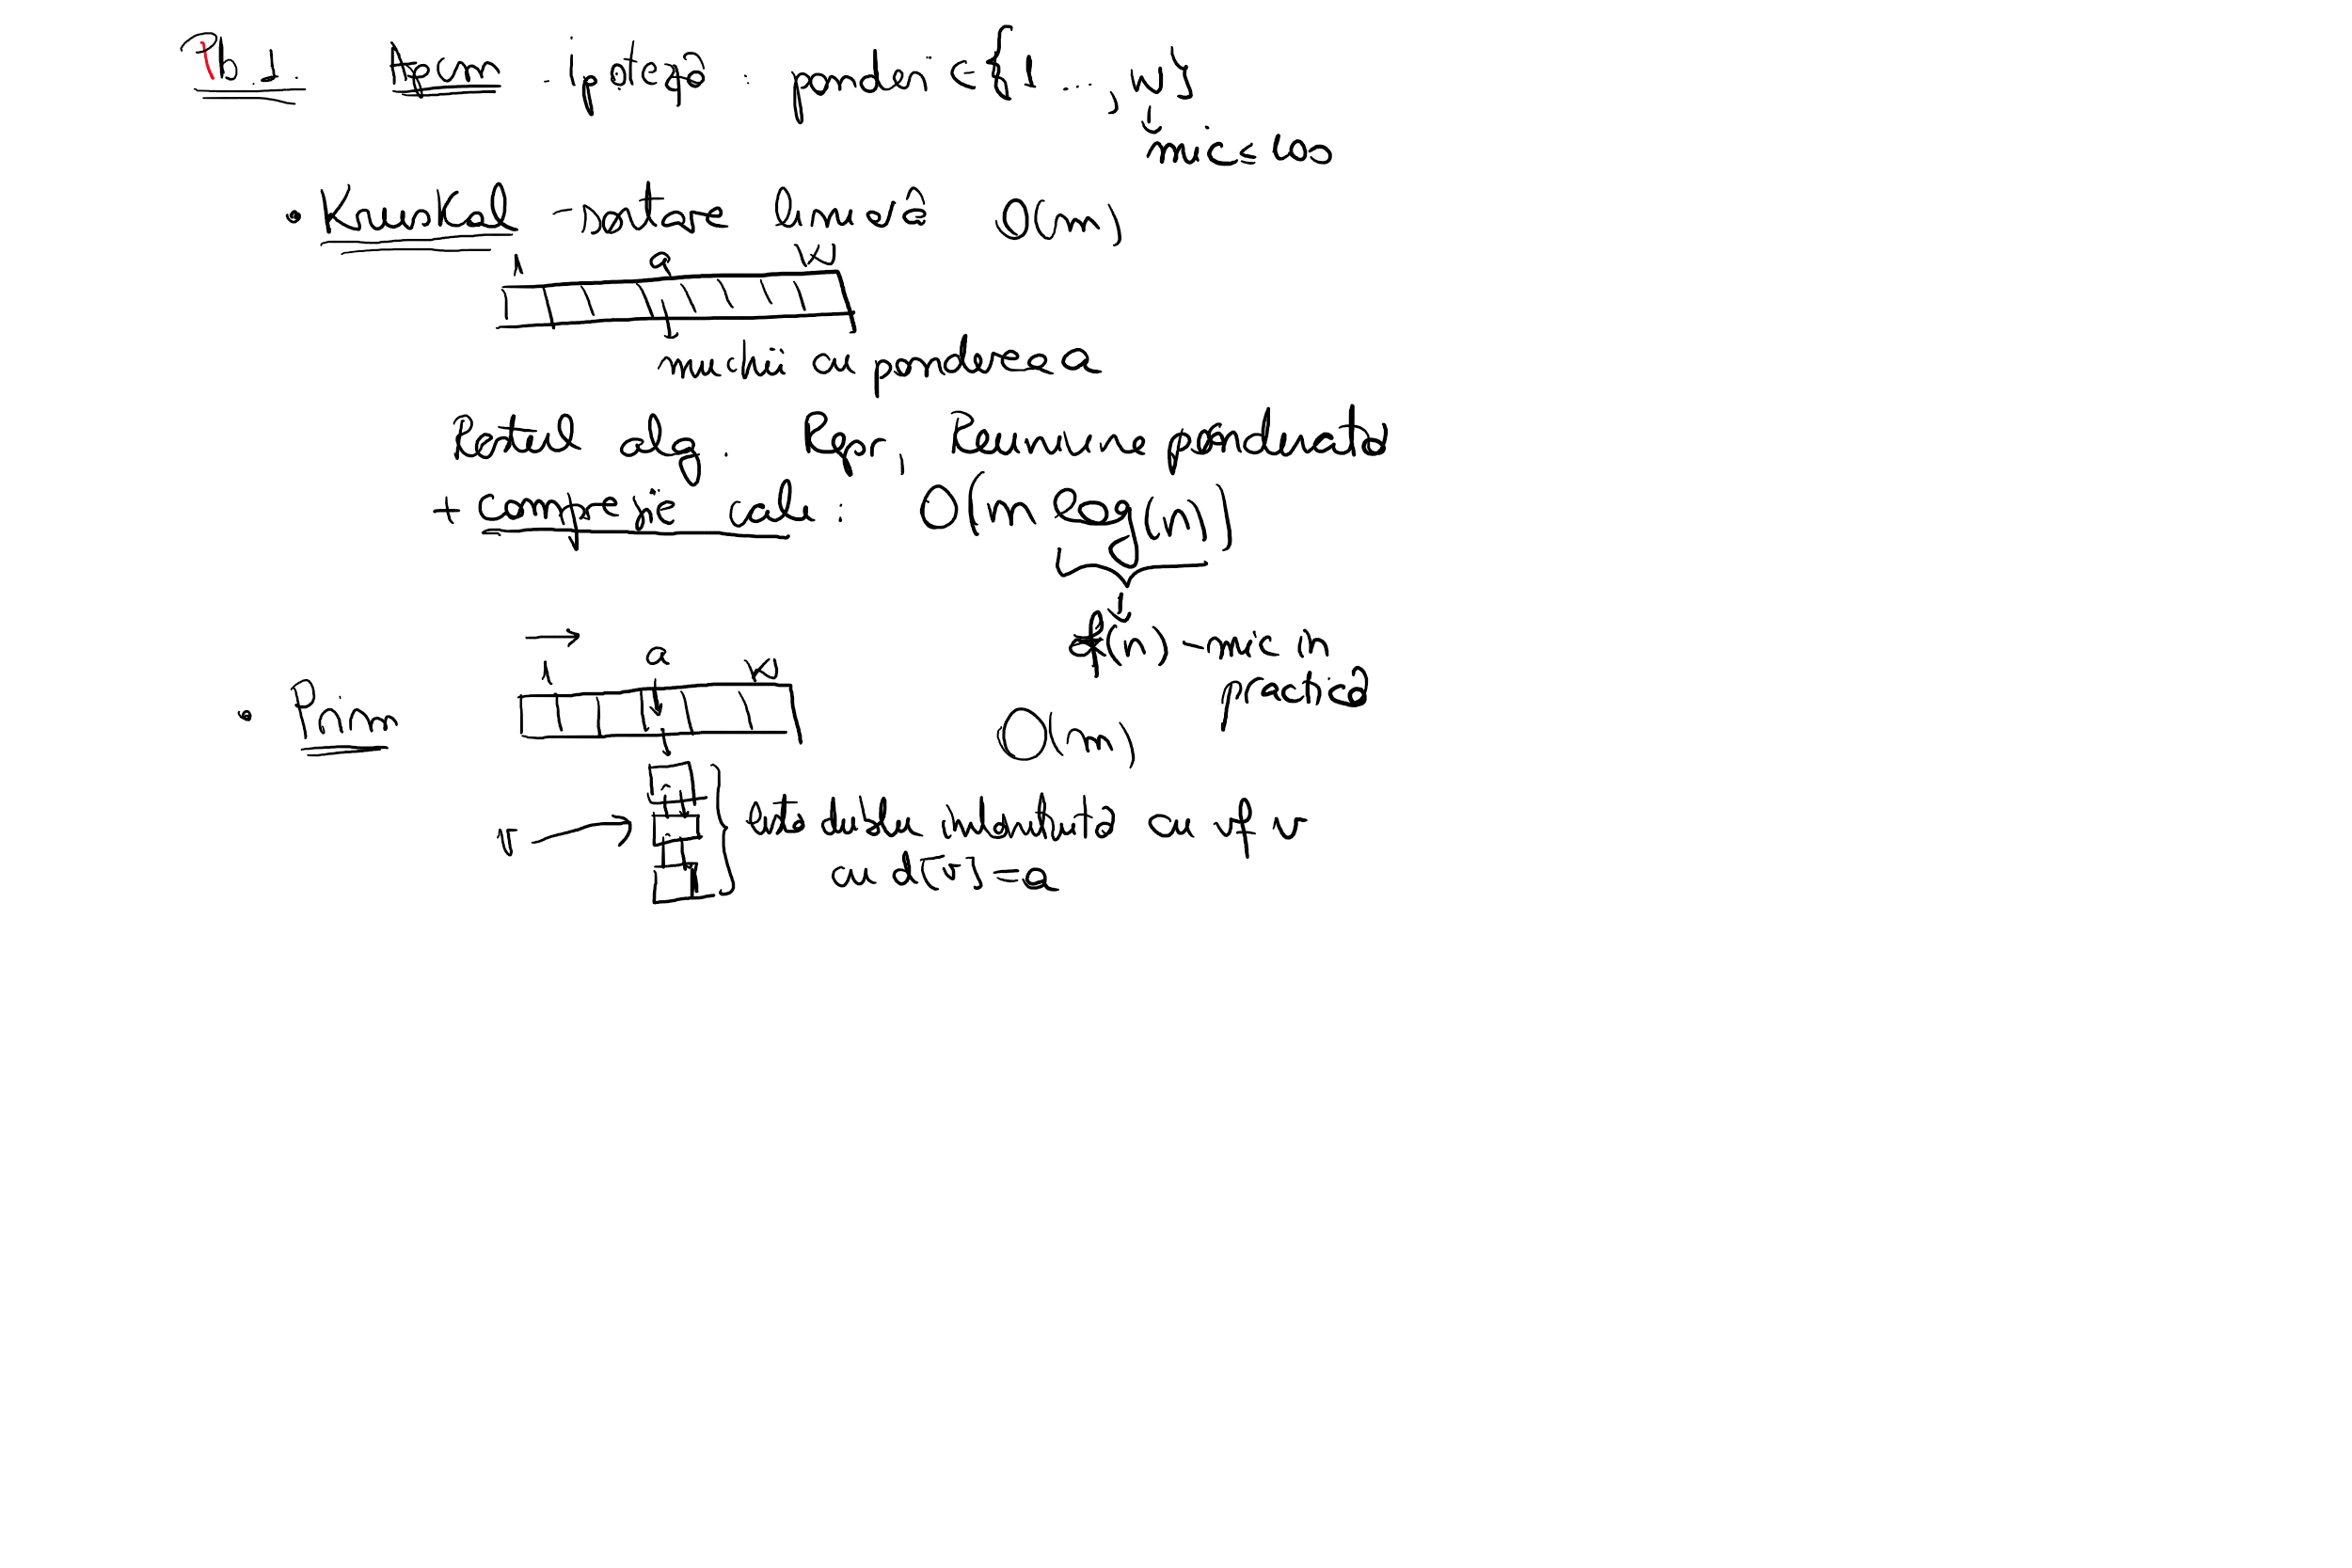 Pb 1. Apcm - ipoteză : ponderi ∈ {1 ..., w}
mic ≤ 100
• Kruskal - sortare liniară O(m)
1 a W
muchii cu ponderea a
Restul alg. Repr, Reuniune ponderată
+ compresie cale : O(m log(n))
f(n) - mic in
practică
1 a W
• Prim O(m)
v → listă dublu inlantuită cu vf v
cu d[v] = a